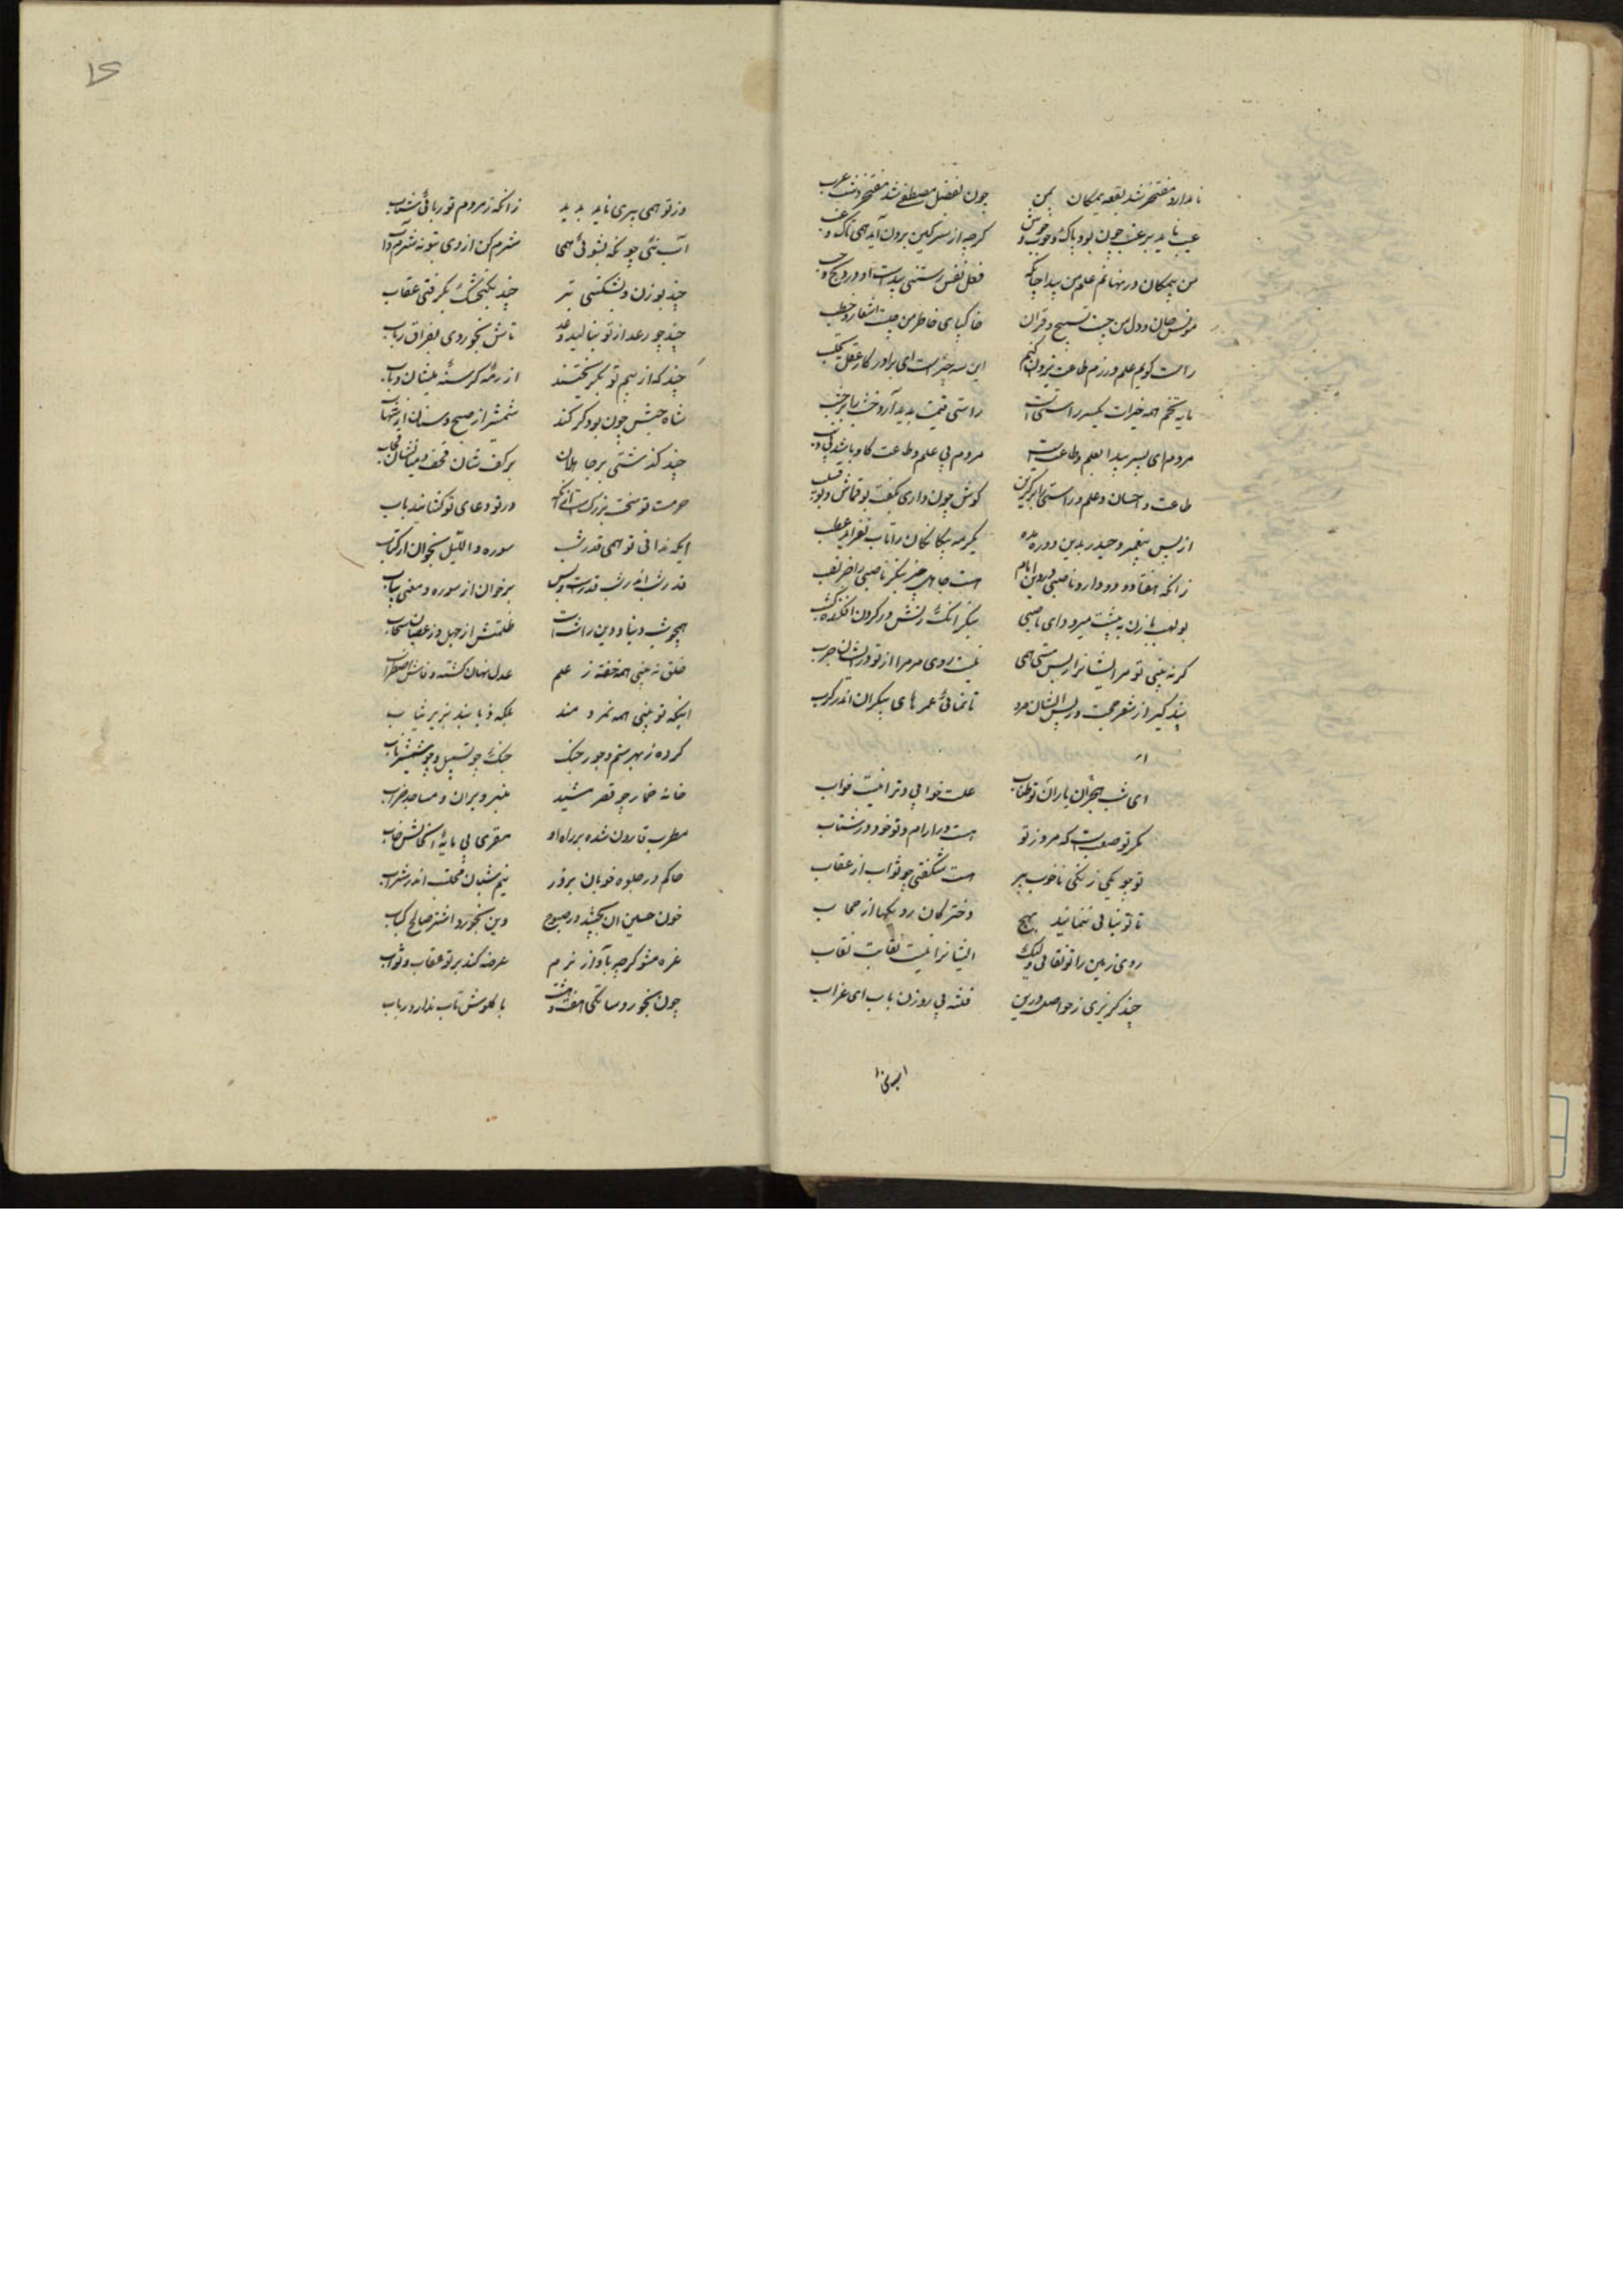 نامدارد مفتخر شد بقعه یمکان بمن چون بفضل مصطفی شد مفتخر دشت عرب
عیب ناید بر عنب چون بود پاک و خوب و خوش گرچه از سرگین برون آید همی تاک عنب
من بیمکان در نهانم علم من پیدا چنانک فعل نفس رستنی پیداست او در بیخ و حب
مونس جان و دل من چیست تسبیح و قران خاک پای خاطر من چیست اشعار و خطب
راست گویم علم ورزم طاعت یزدان کنم این سه چیز است ای برادر کار عقل مکتسب
مایه و تخم همه خیرات یکسر راستیست راستی قیمت پدید آرد خشب را بر خشب
مردم ای پسر پیدا بعلم و طاعتست مردم بی علم و طاعت گاو باشد بی ذنب
طاعت و احسان و علم و راستی را برگزین گوش چون داری بگفت بوقماش و بوقتب
از پس پیغمبر و حیدر بدین در ره مده یک رمه بیگانگان را تات نفزاید عطب
زانکه هفتاد و دو دارد ناصبی در دین امام هست جای جز بنگر ناصبی را جز لقب
بولهب با زن به پیشت میرود ای ناصبی بنگر آنک زنش در گردن افکنده کنب
گر نه بینی تو مر ایشانرا ز بس مستی همی نیست روی مر مرا از تو در ایشان حرب
پند گیر از شعر حجت در پس ایشان مرو تا نمانی عمرهای بیکران اندر کرب
ای شب هجران یاران تو طناب علت خوابی و ترا نیست خواب
مکر تو صعبست که مردم ز تو هست در آرام و تو خود در شتاب
تو چو یکی زنگی ناخوب پیر هست شگفتی چو ثواب از عقاب
تا تو نیایی ننمایند هیچ دخترکان رویکها از حجاب
روی زمین را تو نقابی ولیک ایشانرا نیست نقابت نقاب
چند گریزی ز حواصل درین قلعه بی روزن باب ای غراب
وز تو همی پیری ناید پدید زانکه ز مردم تو ربائی شباب
آب نئی چونکه بشوئی همی شرم کن از روی بتو نه شرم و آب
چند بوزن و شکستی تبر چند بکنجشک گرفتی عقاب
چند چو رعد از تو بنالید دعد تاش بخوردی بفراق رباب
چند که از بیم تو بگریختند از رمه گرسنه میشان ذئاب
شاه حبش چون بود گر کند شمشیر از صبح و سنان از شهاب
چند گذشتی بر جاهلان بر کف شان قحف و میانشان قحاب
حرمت تو سخت بزرگست از آنکه در تو دعای تو گشایند باب
ایکه ندانی تو همی قدر شب سوره و اللیل بخوان از کتاب
قدر شب اندر شب قدرست و بس برخوان از سوره و معنی بیاب
همچو شب دنیا و دین را شبست ظلمتش از جهل و ز عصیان سحاب
خلق نه بینی همه خفته ز علم عدل نهان گشته و فاش اضطراب
اینکه تو بینی همه مردمند بلکه ذبابند بزیر ثیاب
کرده ز بهر ستم و جور جنگ چنگ چو نشپیل و چو شمشیر ناب
خانه خمار چو قصر مشید منبر ویران و مساجد خراب
مطرب قارون شده بر راه او مقری بی مایه و الحانش خاب
حاکم در جلوه خوبان بروز نیم شبان محتسب اندر شراب
خون حسین آن بچشد در صبوح وین بخورد اشتر صالح کباب
غره مشو گرچه بآواز نرم عرضه کند بر تو عقاب و ثواب
چون بخورد ساتگنی هفت و هشت با گلوش تاب ندارد رباب